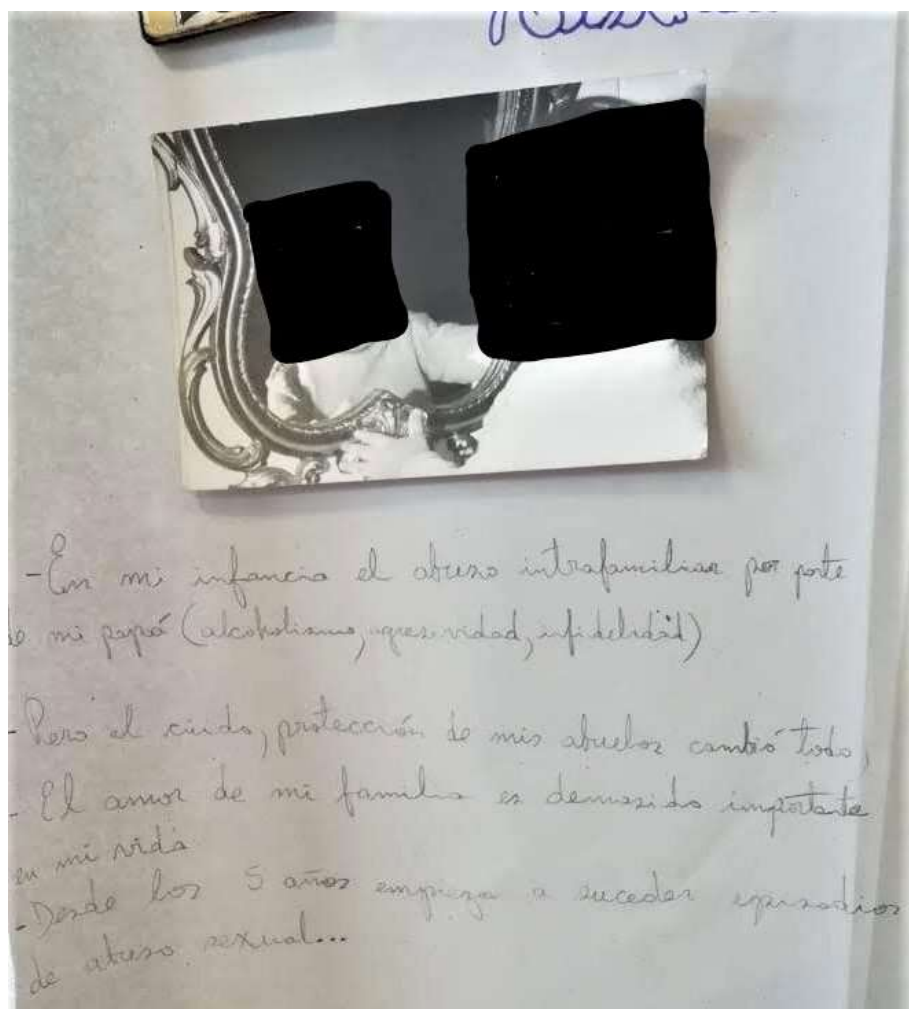 - En mi infancia el abuso intrafamiliar por parte
de mi papá (alcoholismo, agresividad, infidelidad)
- Pero el ciudo, protección de mis abuelos cambió todo,
- El amor de mi familia es demasido importante
en mi vida
- Desde los 5 años empieza a suceder episodios
de abuso sexual...